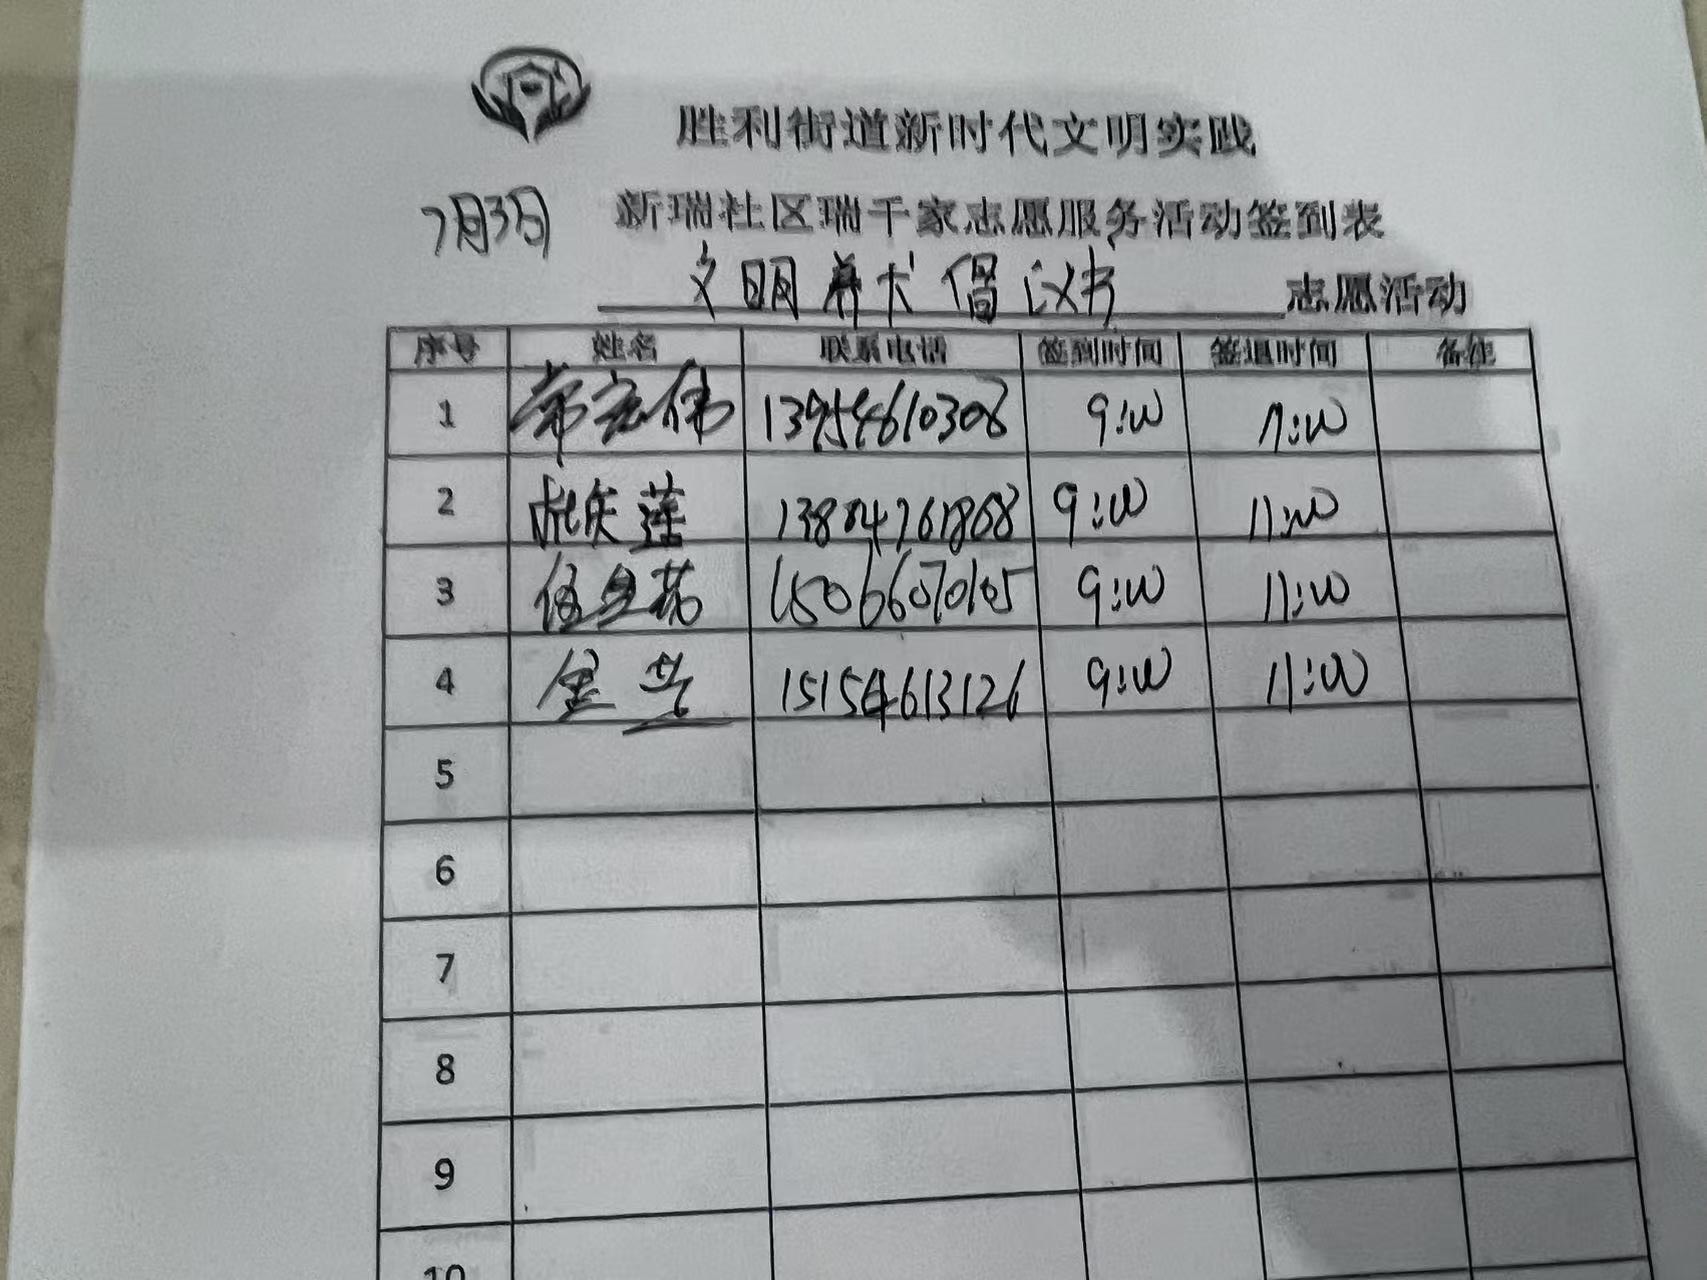 胜利街道新时代文明实践
7月3日 新瑞社区瑞千家志愿服务活动签到表
文明养犬倡议书 志愿活动
序号 姓名 联系电话 签到时间 签退时间 备注
1 常宏伟 13954610308 9:00 11:00
2 庆莲 13884761868 9:00 11:00
3 15066070105 9:00 11:00
4 15154613126 9:00 11:00
5
6
7
8
9
10